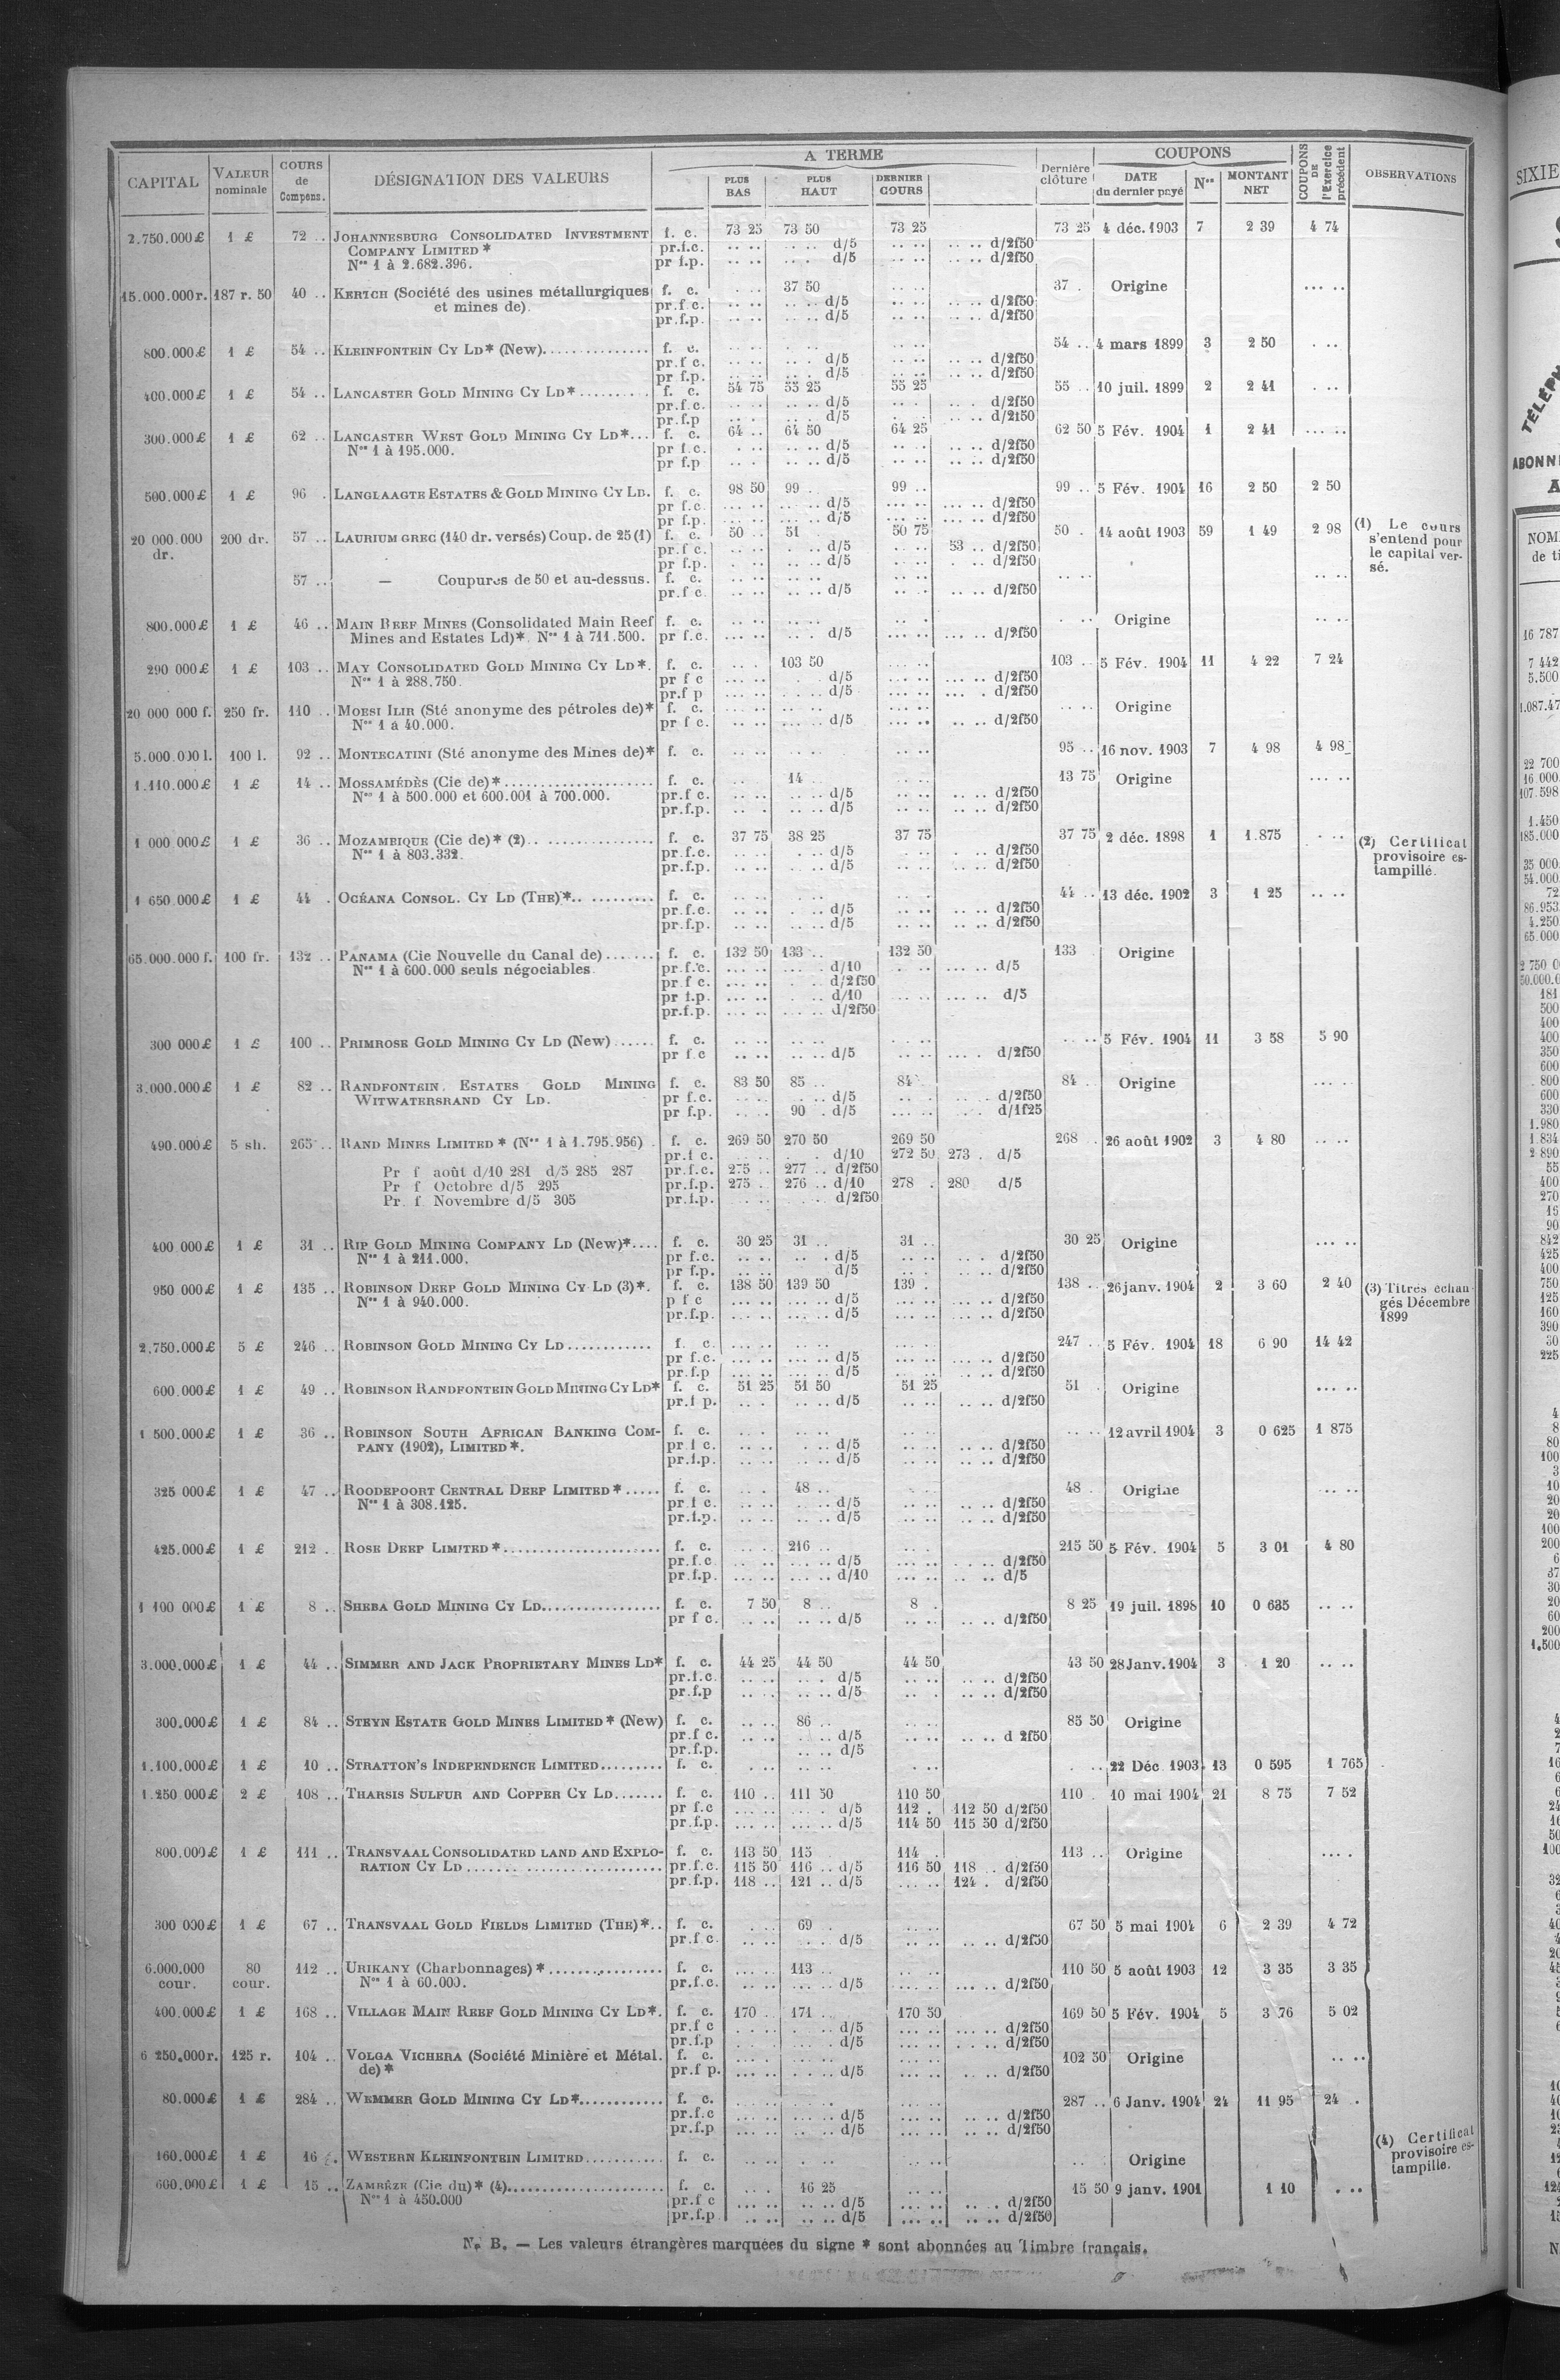 CAPITAL | VALEUR nominale | COURS de Compens. | DÉSIGNATION DES VALEURS | A TERME | PLUS BAS | PLUS HAUT | DERNIER COURS | Dernière clôture | COUPONS | DATE du dernier payé | Nos | MONTANT NET | COUPONS DE l'Exercice précédent | OBSERVATIONS
2.750.000£ 1 £ 72 .. JOHANNESBURG CONSOLIDATED INVESTMENT f. c. 73 25 73 50 73 25 73 25 4 déc. 1903 7 2 39 4 74
COMPANY LIMITED * pr.f.c. d/5 d/2f50
Nos 1 à 2.682.396. pr f.p. d/5 d/2f50
15.000.000r. 187 r. 50 40 .. KERTCH (Société des usines métallurgiques f. c. 37 50 37 . Origine
et mines de). pr.f.c. d/5 d/2f50
pr.f.p. d/5 d/2f50
800.000£ 1 £ 54 .. KLEINFONTEIN CY LD* (New) f. c. 54 .. 4 mars 1899 3 2 50
pr.f c. d/5 d/2f50
pr f.p. d/5 d/2f50
400.000£ 1 £ 54 .. LANCASTER GOLD MINING CY LD* f. c. 54 75 55 25 55 25 55 .. 10 juil. 1899 2 2 41
pr.f.c. d/5 d/2f50
pr.f.p d/5 d/2f50
300.000£ 1 £ 62 .. LANCASTER WEST GOLD MINING CY LD* f. c. 64 .. 64 50 64 25 62 50 5 Fév. 1904 1 2 41
Nos 1 à 195.000. pr f.c. d/5 d/2f50
pr f.p d/5 d/2f50
500.000£ 1 £ 96 . LANGLAAGTE ESTATES & GOLD MINING CY LD. f. c. 98 50 99 .. 99 .. 99 .. 5 Fév. 1904 16 2 50 2 50
pr f.c. d/5 d/2f50
pr f.p. d/5 d/2f50
20 000.000 dr. 200 dr. 57 .. LAURIUM GREC (140 dr. versés) Coup. de 25 (1) f. c. 50 .. 51 50 75 50 . 14 août 1903 59 1 49 2 98 (1) Le cours s'entend pour le capital versé.
pr.f c. d/5 53 .. d/2f50
pr f.p. d/5 d/2f50
57 .. — Coupures de 50 et au-dessus. f. c.
pr.f c d/5 d/2f50
800.000£ 1 £ 46 .. MAIN REEF MINES (Consolidated Main Reef f. c. Origine
Mines and Estates Ld)*. Nos 1 à 711.500. pr f.c. d/5 d/2f50
290 000£ 1 £ 103 .. MAY CONSOLIDATED GOLD MINING CY LD*. f. c. 103 50 103 .. 5 Fév. 1904 11 4 22 7 24
Nos 1 à 288.750. pr f c d/5 d/2f50
pr.f p d/5 d/2f50
20 000 000 f. 250 fr. 110 .. MOESI ILIR (Sté anonyme des pétroles de)* f. c. Origine
Nos 1 à 40.000. pr f c. d/5 d/2f50
5.000.000 l. 100 l. 92 .. MONTECATINI (Sté anonyme des Mines de)* f. c. 95 .. 16 nov. 1903 7 4 98 4 98
1.110.000£ 1 £ 14 .. MOSSAMÉDÈS (Cie de)* f. c. 14 .. 13 75 Origine
Nos 1 à 500.000 et 600.001 à 700.000. pr.f c. d/5 d/2f50
pr.f.p. d/5 d/2f50
1 000 000£ 1 £ 36 .. MOZAMBIQUE (Cie de)* (2) f. c. 37 75 38 25 37 75 37 75 2 déc. 1898 1 1.875 (2) Certificat provisoire estampillé.
Nos 1 à 803.332. pr.f.c. d/5 d/2f50
pr.f.p. d/5 d/2f50
1 650 000£ 1 £ 44 . OCÉANA CONSOL. CY LD (THE)* f. c. 44 .. 13 déc. 1902 3 1 25
pr.f.c. d/5 d/2f50
pr.f.p. d/5 d/2f50
65.000.000 f. 100 fr. 132 .. PANAMA (Cie Nouvelle du Canal de) f. c. 132 50 133 .. 132 50 133 Origine
Nos 1 à 600.000 seuls négociables. pr.f.c. d/10 d/5
pr f c. d/2f50
pr f.p. d/10 d/5
pr.f.p. d/2f50
300 000£ 1 £ 100 .. PRIMROSE GOLD MINING CY LD (New) f. c. 5 Fév. 1904 11 3 58 5 90
pr f.c d/5 d/2f50
3.000.000£ 1 £ 82 .. RANDFONTEIN ESTATES GOLD MINING f. c. 83 50 85 .. 84 . 84 . Origine
WITWATERSRAND CY LD. pr f.c. d/5 d/2f50
pr f.p. 90 . d/5 d/1f25
490.000£ 5 sh. 265 .. RAND MINES LIMITED * (Nos 1 à 1.795.956) f. c. 269 50 270 50 269 50 268 . 26 août 1902 3 4 80
pr.f c. d/10 272 50 273 . d/5
Pr f août d/10 281 d/5 285 287 pr.f.c. 275 .. 277 .. d/2f50
Pr f Octobre d/5 295 pr.f.p. 275 . 276 .. d/10 278 . 280 d/5
Pr. f Novembre d/5 305 pr.f.p. d/2f50
400 000£ 1 £ 31 .. RIP GOLD MINING COMPANY LD (New)* f. c. 30 25 31 .. 31 .. 30 25 Origine
Nos 1 à 211.000. pr f.c. d/5 d/2f50
pr f.p. d/5 d/2f50
950 000£ 1 £ 135 .. ROBINSON DEEP GOLD MINING CY LD (3)*. f. c. 138 50 139 50 139 . 138 .. 26 janv. 1904 2 3 60 2 40 (3) Titres échangés Décembre 1899
Nos 1 à 940.000. p f c d/5 d/2f50
pr.f.p. d/5 d/2f50
2.750.000£ 5 £ 246 .. ROBINSON GOLD MINING CY LD f. c. 247 .. 5 Fév. 1904 18 6 90 14 42
pr f.c. d/5 d/2f50
pr.f.p d/5 d/2f50
600.000£ 1 £ 49 .. ROBINSON RANDFONTEIN GOLD MINING CY LD* f. c. 51 25 51 50 51 25 51 Origine
pr.f p. d/5 d/2f50
1 500.000£ 1 £ 36 .. ROBINSON SOUTH AFRICAN BANKING COM- f. c. 12 avril 1904 3 0 625 1 875
PANY (1902), LIMITED*. pr.f c. d/5 d/2f50
pr.f.p. d/5 d/2f50
325 000£ 1 £ 47 .. ROODEPOORT CENTRAL DEEP LIMITED* f. c. 48 .. 48 . Origine
Nos 1 à 308.125. pr.f c. d/5 d/2f50
pr.f.p. d/5 d/2f50
425.000£ 1 £ 212 . ROSE DEEP LIMITED* f. c. 216 .. 215 50 5 Fév. 1904 5 3 01 4 80
pr.f.c d/5 d/2f50
pr.f.p. d/10 d/5
1 100 000£ 1 £ 8 .. SHEBA GOLD MINING CY LD f. c. 7 50 8 .. 8 . 8 25 19 juil. 1898 10 0 635
pr f c. d/5 d/2f50
3.000.000£ 1 £ 44 .. SIMMER AND JACK PROPRIETARY MINES LD* f. c. 44 25 44 50 44 50 43 50 28 Janv. 1904 3 1 20
pr.f.c. d/5 d/2f50
pr.f.p d/5 d/2f50
300.000£ 1 £ 84 .. STEYN ESTATE GOLD MINES LIMITED* (New) f. c. 86 .. 85 50 Origine
pr.f c. d/5 d 2f50
pr.f.p. d/5
1.100.000£ 1 £ 10 .. STRATTON'S INDEPENDENCE LIMITED f. c. 22 Déc 1903 13 0 595 1 765
1.250 000£ 2 £ 108 .. THARSIS SULFUR AND COPPER CY LD f. c. 110 .. 111 50 110 50 110 . 10 mai 1904 21 8 75 7 52
pr f.c d/5 112 . 112 50 d/2f50
pr.f.p. d/5 114 50 115 50 d/2f50
800.000£ 1 £ 111 .. TRANSVAAL CONSOLIDATED LAND AND EXPLO- f. c. 113 50 115 114 . 113 .. Origine
RATION CY LD pr.f.c. 115 50 116 .. d/5 116 50 118 .. d/2f50
pr.f.p. 118 .. 121 .. d/5 124 . d/2f50
300 000£ 1 £ 67 .. TRANSVAAL GOLD FIELDS LIMITED (THE)* f. c. 69 . 67 50 5 mai 1904 6 2 39 4 72
pr.f c. d/5 d/2f50
6.000.000 cour. 80 cour. 112 .. URIKANY (Charbonnages)* f. c. 113 .. 110 50 5 août 1903 12 3 35 3 35
Nos 1 à 60.000. pr.f.c. d/5 d/2f50
400.000£ 1 £ 168 .. VILLAGE MAIN REEF GOLD MINING CY LD*. f. c. 170 .. 171 .. 170 50 169 50 5 Fév. 1904 5 3 76 5 02
pr.f c d/5 d/2f50
pr.f.p d/5 d/2f50
6 250.000r. 125 r. 104 .. VOLGA VICHERA (Société Minière et Métal. f. c. 102 50 Origine
de)* pr.f p. d/5 d/2f50
80.000£ 1 £ 284 .. WEMMER GOLD MINING CY LD* f. c. 287 .. 6 Janv. 1904 24 11 95 24 .
pr.f.c d/5 d/2f50
pr.f.p d/5 d/2f50
160.000£ 1 £ 16 . WESTERN KLEINFONTEIN LIMITED f. c. Origine (4) Certificat provisoire estampille.
600.000£ 1 £ 15 .. ZAMBÈZE (Cie du)* (4) f. c. 16 25 15 50 9 janv. 1901 1 10
Nos 1 à 450.000 pr.f c d/5 d/2f50
pr.f.p d/5 d/2f50
N. B. — Les valeurs étrangères marquées du signe * sont abonnées au Timbre français.